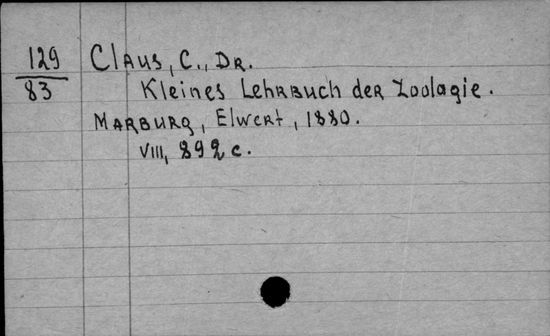 129
83
Claus, C., Dr.
Kleines Lehrbuch der Zoologie.
Marburg, Elwert, 1880.
VIII, 892 c.